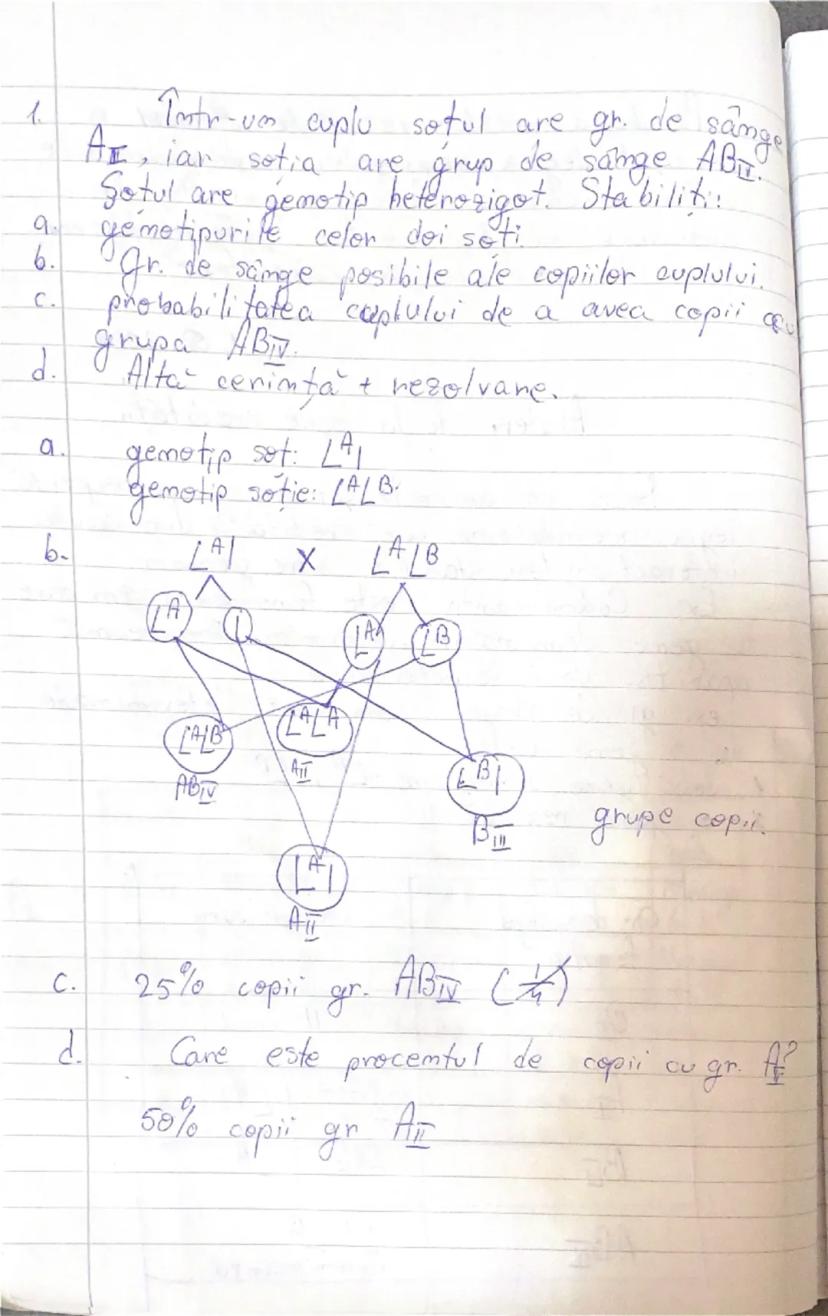 1. Într-un cuplu soțul are gr. de sânge
AII, iar soția are grup de sânge ABIV.
Soțul are genotip heterozigot. Stabiliți:
a. genotipurile celor doi soți.
b. Gr. de sânge posibile ale copiilor cuplului.
c. probabilitatea cuplului de a avea copii cu
grupa ABIV.
d. Altă cerință + rezolvare.
a. genotip soț: LAl
genotip soție: LALB.
b. LAl x LALB
LA l LA LB
LALB LALA
ABIV AII
LBl
BIII grupe copii.
LAl
AII
c. 25% copii gr. ABIV (1/4)
d. Care este procentul de copii cu gr. AII?
50% copii gr AII